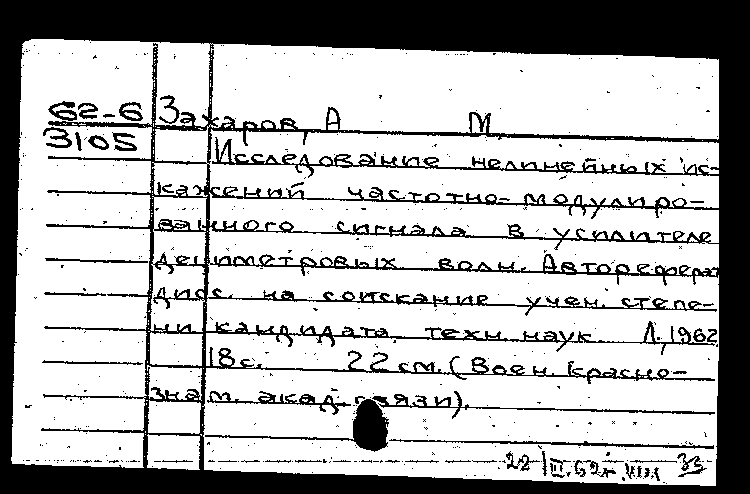 62-6 Захаров, А М.
3105
Исследование нелинейных ис-
кажений частотно-модулиро-
ванного сигнала в усилителе
дециметровых волн. Автореферат
дисс. на соискание учен. степе-
ни кандидата техн. наук. Л., 1962
18 с. 22 см. (Воен. Красно-
знам. акад. связи).
22/III.62г. VIII 33